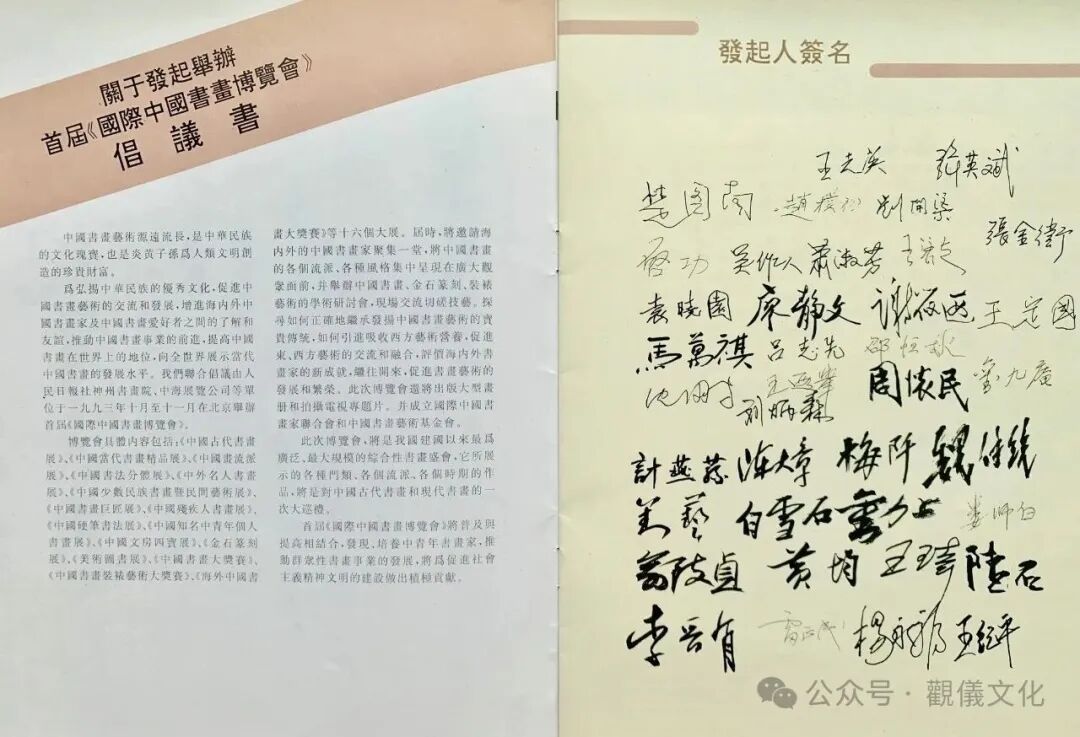 關于發起舉辦
首屆《國際中國書畫博覽會》
倡議書
中國書畫藝術源遠流長，是中華民族
的文化瑰寶，也是炎黃子孫爲人類文明創
造的珍貴財富。
爲弘揚中華民族的優秀文化，促進中
國書畫藝術的交流和發展，增進海内外中
國書畫家及中國書畫愛好者之間的了解和
友誼，推動中國書畫事業的前進，提高中國
書畫在世界上的地位，向全世界展示當代
中國書畫的發展水平。我們聯合倡議由人
民日報社神州書畫院、中海展覽公司等單
位于一九九三年十月至十一月在北京舉辦
首屆《國際中國書畫博覽會》。
博覽會具體内容包括：《中國古代書畫
展》、《中國當代書畫精品展》、《中國畫流派
展》、《中國書法分體展》、《中外名人書畫
展》、《中國少數民族書畫暨民間藝術展》、
《中國書畫巨匠展》、《中國殘疾人書畫展》、
《中國硬筆書法展》、《中國知名中青年個人
書畫展》、《中國文房四寶展》、《金石篆刻
展》、《美術圖書展》、《中國書畫大獎賽》、
《中國書畫裝裱藝術大獎賽》、《海外中國書
畫大獎賽》等十六個大展。屆時，將邀請海
内外的中國書畫家聚集一堂，將中國書畫
的各個流派、各種風格集中呈現在廣大觀
衆面前，并舉辦中國書畫、金石篆刻、裝裱
藝術的學術研討會，現場交流切磋技藝。探
尋如何正確地繼承發揚中國書畫藝術的寶
貴傳統，如何引進吸收西方藝術營養，促進
東、西方藝術的交流和融合，評價海内外書
畫家的新成就，繼往開來，促進書畫藝術的
發展和繁榮。此次博覽會還將出版大型畫
册和拍攝電視專題片。并成立國際中國書
畫家聯合會和中國書畫藝術基金會。
此次博覽會，將是我國建國以來最爲
廣泛、最大規模的綜合性書畫盛會，它所展
示的各種門類、各個流派、各個時期的作
品，將是對中國古代書畫和現代書畫的一
次大巡禮。
首屆《國際中國書畫博覽會》將普及與
提高相結合，發現、培養中青年書畫家，推
動群衆性書畫事業的發展，將爲促進社會
主義精神文明的建設做出積極貢獻。
發起人簽名
王光英
楚圖南 趙樸初 劉開渠
張金衛
啓功 吴作人 蕭淑芳
袁曉園 廖静文 謝 王定國
馬萬祺 吕志先
周懷民
劉炳森
計燕蓀 陳大章 梅阡
白雪石 婁師白
黄均 陸石
李
公众号·觀儀文化